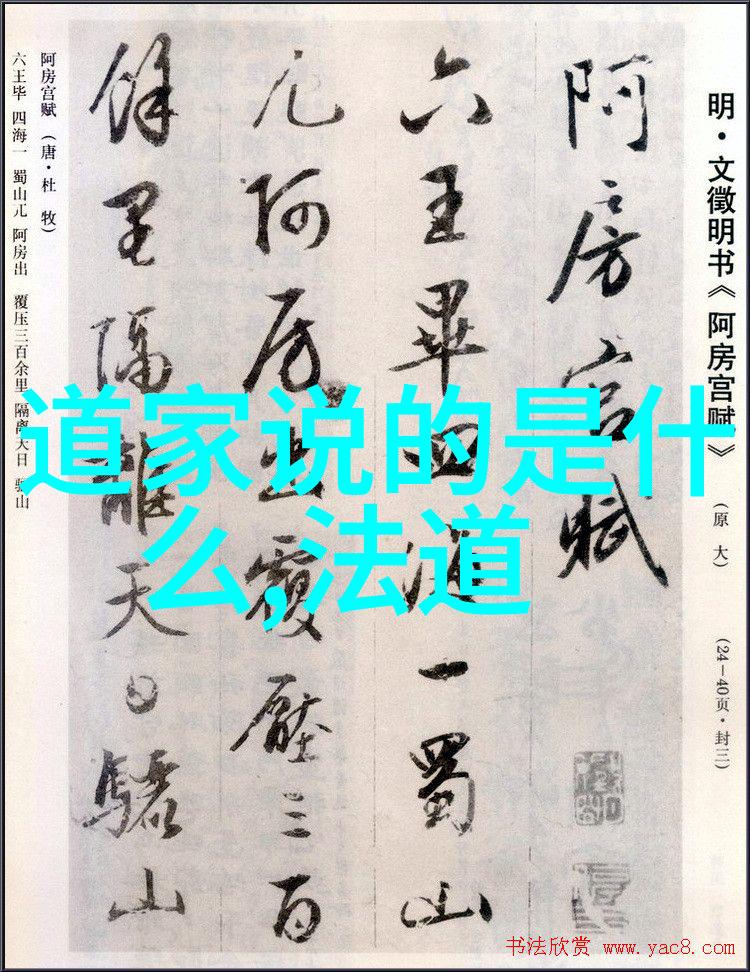 明·文徵明书《阿房宫赋》
(原大)
(24—40页·封三)
阿房宫赋
六王畢四海一蜀山
兀阿房出覆壓三百
餘里隔離天日驪山
阿房宫赋（唐·杜 牧）
六王毕 四海一 蜀山兀 阿房出 覆压三百余里 隔离天日 骊山
道家说的是什
么,法道
书法欣赏 www.yac8.com